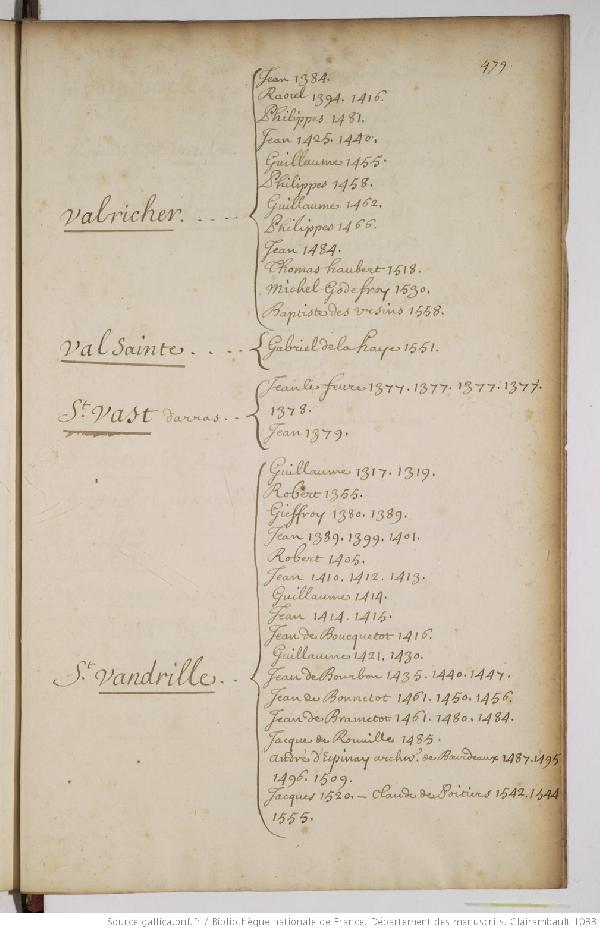 479.
Jean 1384.
Raoul 1394. 1416.
Philippes 1481.
Jean 1425. 1440.
Guillaume 1455.
Philippes 1458.
Valricher. . . . .
Guillaume 1462.
Philippes 1466.
Jean 1484.
Thomas haubert 1518.
Michel Godefroy 1530.
Baptiste des ursins 1558.
Val Sainte . . . . .
Gabriel de la haye 1551.
Jean le fevre 1377. 1377. 1377. 1377.
St. Vast darras. . .
1378.
Jean 1379.
Guillaume 1317. 1319.
Robert 1355.
Gieffroy 1380. 1389.
Jean 1389. 1399. 1401.
Robert 1405.
Jean 1410. 1412. 1413.
Guillaume 1414.
Jean 1414. 1415.
Jean de Boucquetot 1416.
Guillaume 1421. 1430.
St. Vandrille. . .
Jean de Bourbon 1435. 1440. 1447.
Jean de Bonnetot 1461. 1450. 1456.
Jean de Brametot 1461. 1480. 1484.
Jacque de Rouville 1485.
André d'Epinay archev. de Bourdeaux 1487. 1495
1496. 1509.
Jacques 1520. — Claude de Poitiers 1542. 1544
1555.
Source gallica.bnf.fr / Bibliothèque nationale de France. Département des manuscrits. Clairambault 1033